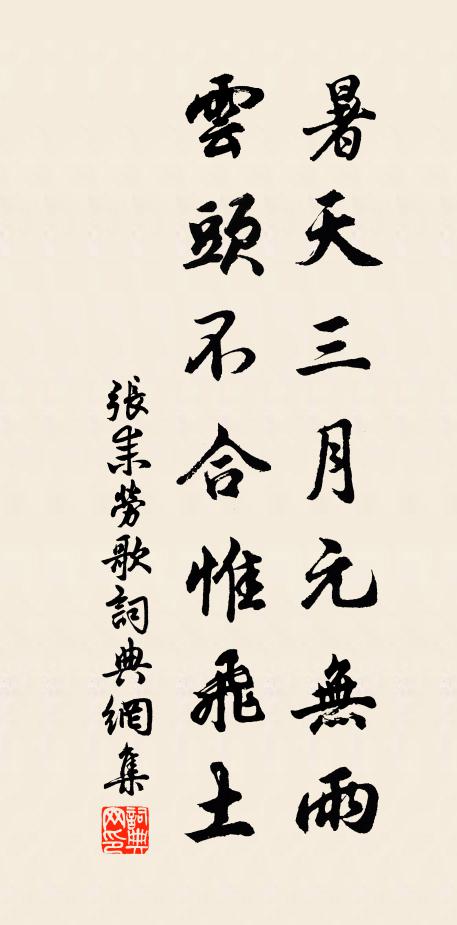 暑天三月元無雨
雲頭不合惟飛土
張耒勞歌詞典網集
詞典網印